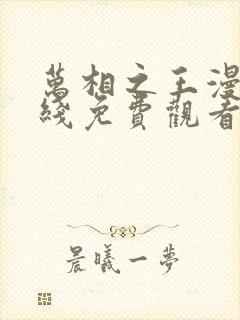 萬相之王漫
綫免費觀看
晨曦一夢